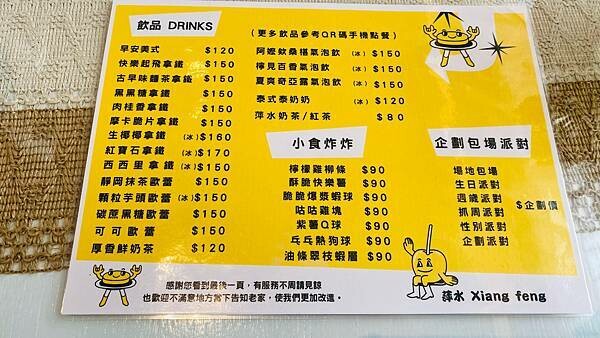 飲品 DRINKS
早安美式 $120
快樂起飛拿鐵 $150
古早味麵茶拿鐵 $150
黑黑糖拿鐵 $150
肉桂香拿鐵 $150
摩卡脆片拿鐵 $150
生椰椰拿鐵 (冰) $160
紅寶石拿鐵 (冰) $170
西西里拿鐵 (冰) $150
靜岡抹茶歐蕾 $150
顆粒芋頭歐蕾 (冰) $150
碳蔗黑糖歐蕾 $150
可可歐蕾 $150
厚香鮮奶茶 $120
(更多飲品參考QR碼手機點餐)
阿嬤欸桑椹氣泡飲 (冰) $150
檸見百香氣泡飲 (冰) $150
夏爽奇亞露氣泡飲 (冰) $150
泰式泰奶奶 (冰) $120
萍水奶茶/紅茶 $80
小食炸炸
檸檬雞柳條 $90
酥脆快樂薯 $90
脆脆爆漿蝦球 $90
咕咕雞塊 $90
紫薯Q球 $90
乒乓熱狗球 $90
油條翠枝蝦層 $90
企劃包場派對
場地包場
生日派對
週歲派對
抓周派對
性別派對
企劃派對
$企劃價
感謝您看到最後一頁，有服務不周請見諒
也歡迎不滿意地方當下告知老家，使我們更加改進。
萍水 Xiang feng